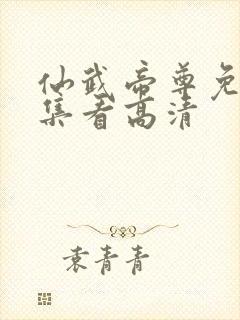 仙武帝尊免
集看高清
袁青青